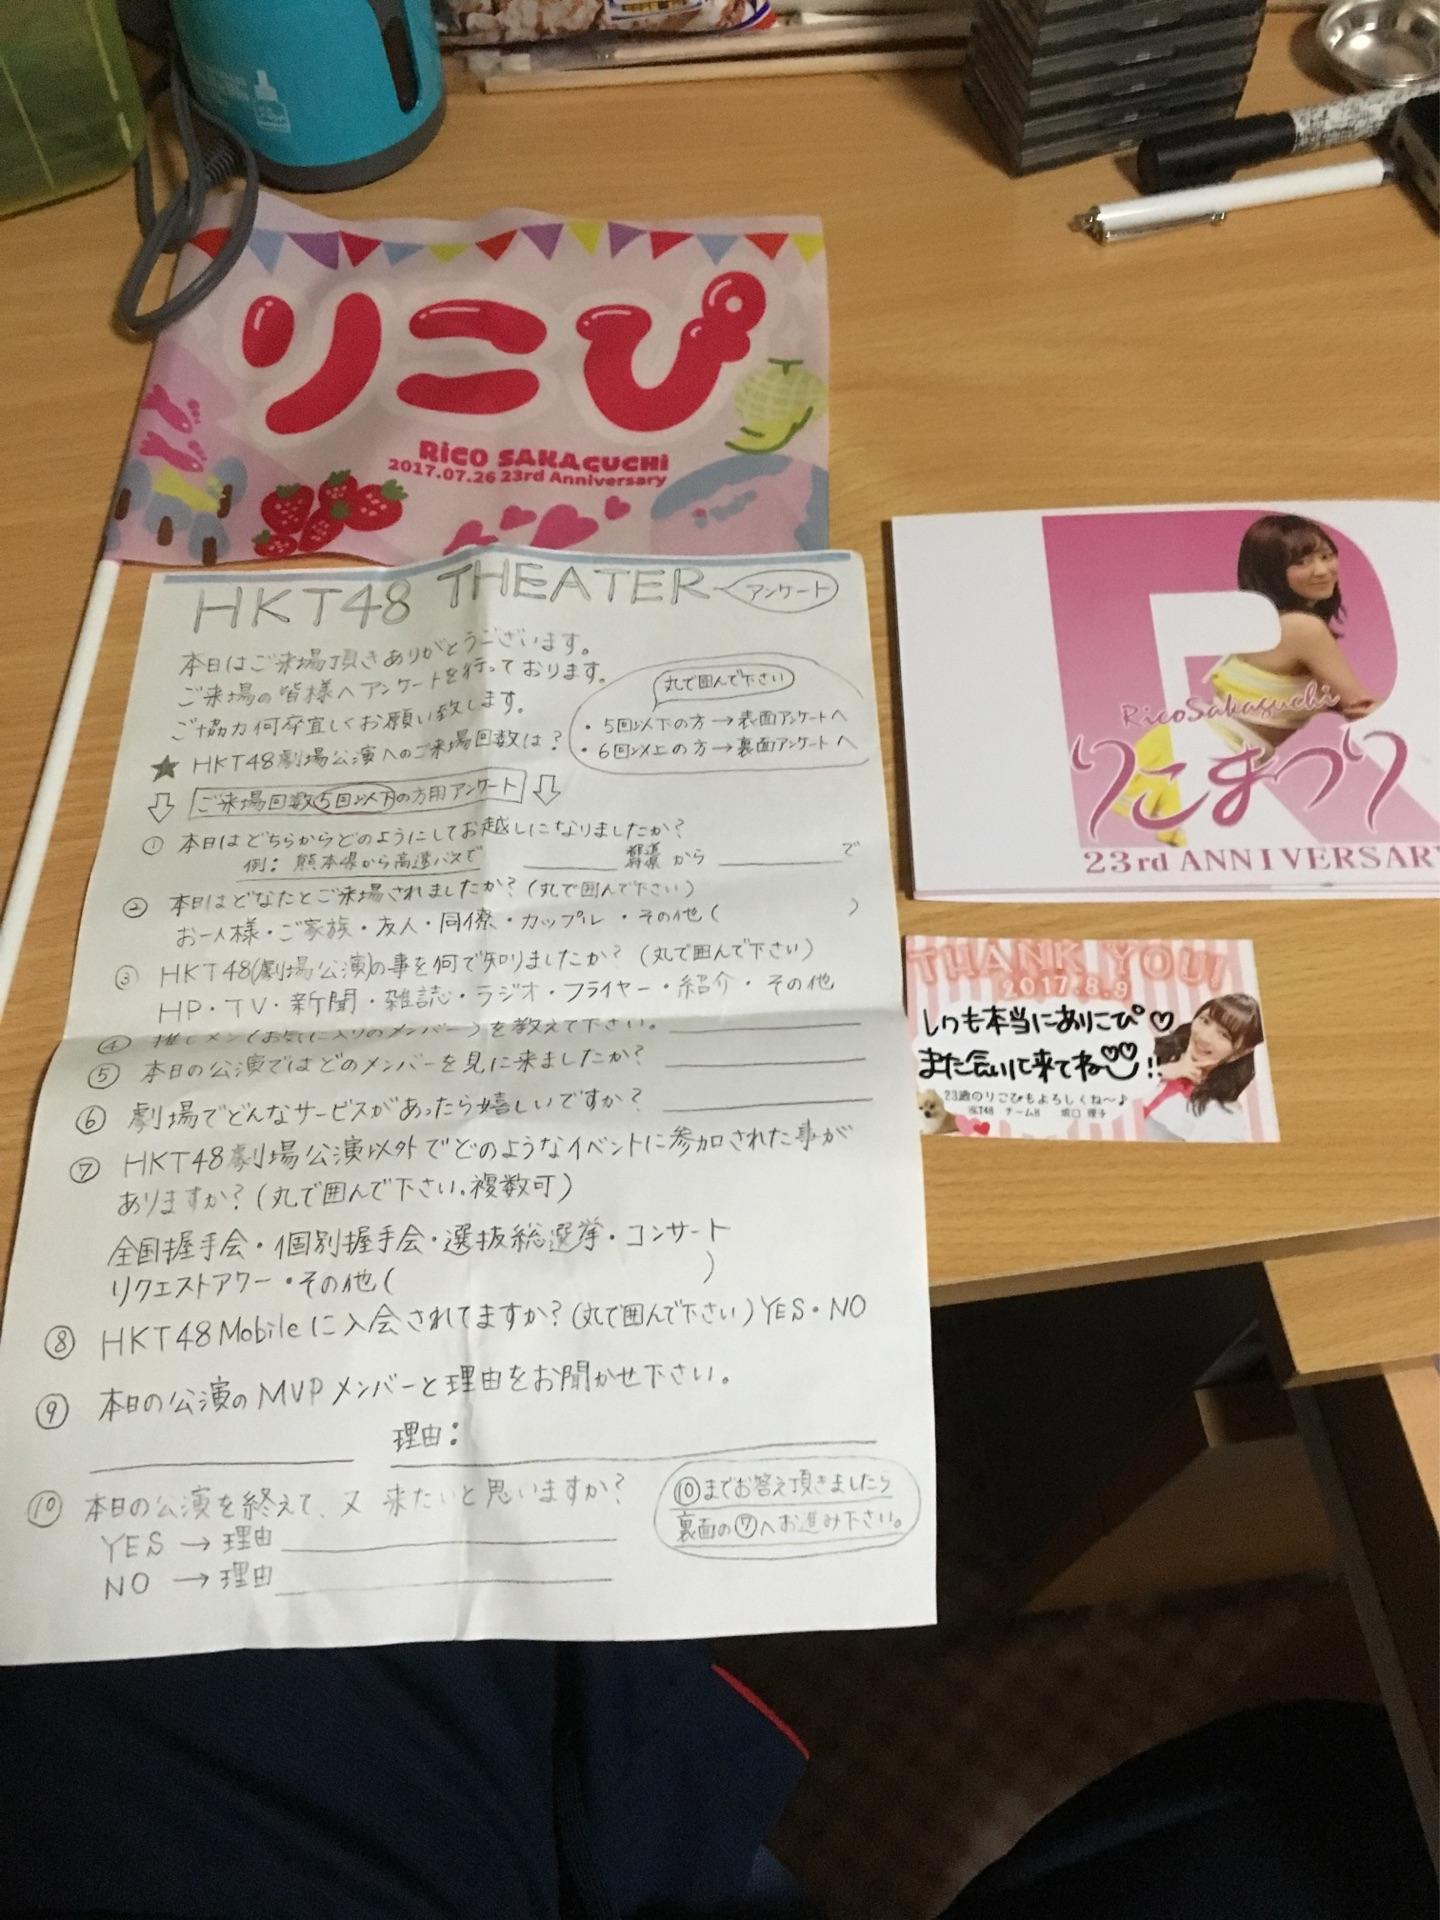 りこぴ
RiCO SAKAGUCHi
2017.07.26 23rd Anniversary
HKT48 THEATER アンケート
本日はご来場頂きありがとうございます。
ご来場の皆様へアンケートを行っております。
ご協力何卒宜しくお願い致します。
★ HKT48劇場公演へのご来場回数は?
丸で囲んで下さい
・5回以下の方→表面アンケートへ
・6回以上の方→裏面アンケートへ
ご来場回数5回以下の方用アンケート
① 本日はどちらからどのようにしてお越しになりましたか?
例:熊本県から高速バスで 都道府県から で
② 本日はどなたとご来場されましたか?(丸で囲んで下さい)
お一人様・ご家族・友人・同僚・カップル・その他( )
③ HKT48(劇場公演)の事を何で知りましたか?(丸で囲んで下さい)
HP・TV・新聞・雑誌・ラジオ・フライヤー・紹介・その他
④ 推しメン(お気に入りのメンバー)を教えて下さい。
⑤ 本日の公演ではどのメンバーを見に来ましたか?
⑥ 劇場でどんなサービスがあったら嬉しいですか?
⑦ HKT48劇場公演以外でどのようなイベントに参加された事が
ありますか?(丸で囲んで下さい。複数可)
全国握手会・個別握手会・選抜総選挙・コンサート
リクエストアワー・その他( )
⑧ HKT48Mobileに入会されてますか?(丸で囲んで下さい)YES・NO
⑨ 本日の公演のMVPメンバーと理由をお聞かせ下さい。
理由:
⑩ 本日の公演を終えて、又来たいと思いますか?
YES→理由
NO→理由
⑩までお答え頂きましたら
裏面の⑦へお進み下さい。
R
RicoSakaguchi
りこまつり
23rd ANNIVERSARY
THANK YOU!
2017.8.9
いつも本当にありこぴ♡
また会いに来てね♡♡!!
23歳のりこぴもよろしくね〜♪
HKT48 チームH 坂口 理子